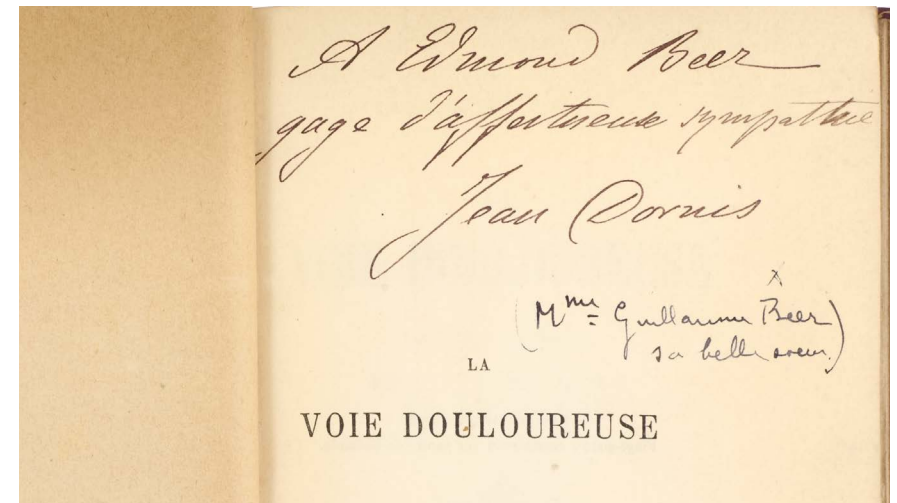 A Edmond Beer
gage d'affectueuse sympathie
Jean Dornis
(Mme Guillaume Beer)
sa belle soeur.)
LA
VOIE DOULOUREUSE